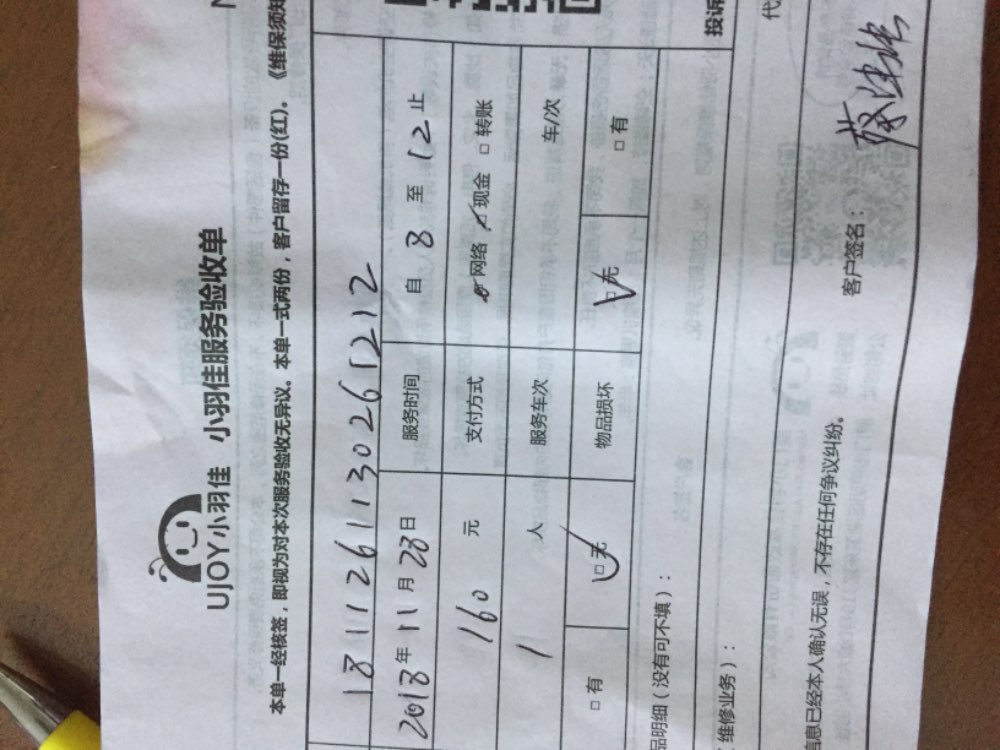 UJOY小羽佳 小羽佳服务验收单
本单一经核签，即视为对本次服务验收无异议。本单一式两份，客户留存一份(红)。《维保须知
1811261130261212
2018年11月28日 服务时间 自 8 至 12 止
160 元 支付方式 □网络 □现金 □转账
1 人 服务车次 车/次
□有 □无 物品损坏 □无 □有
品明细（没有可不填）：
投诉
维修业务）：
代
信息已经本人确认无误，不存在任何争议纠纷。 客户签名：